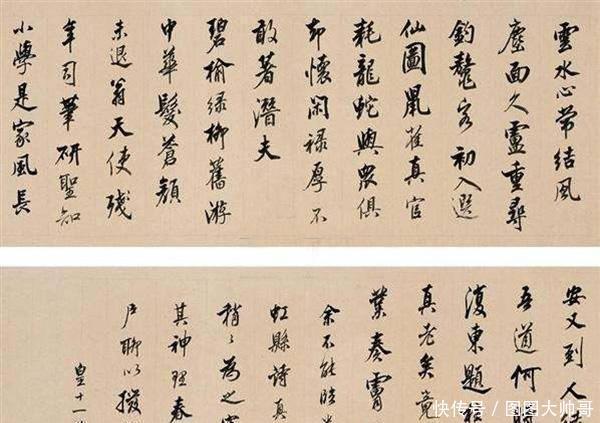 雲水心常結風
塵面久盧重尋
釣鼇客初入選
仙圖鼠雀真官
耗龍蛇與眾俱
却懷閑祿厚不
敢著潛夫
碧榆綠柳舊游
中華髮蒼顏
未退翁天使殘
年司筆研聖知
小學是家風長
安又到人徒
吾道何時
復東題柱
真老矣竟
業奏霄
余不能臨
虹縣詩真
稍〻為之
其神理春
戶聊以撥
皇十一
快传号／图图大帅哥